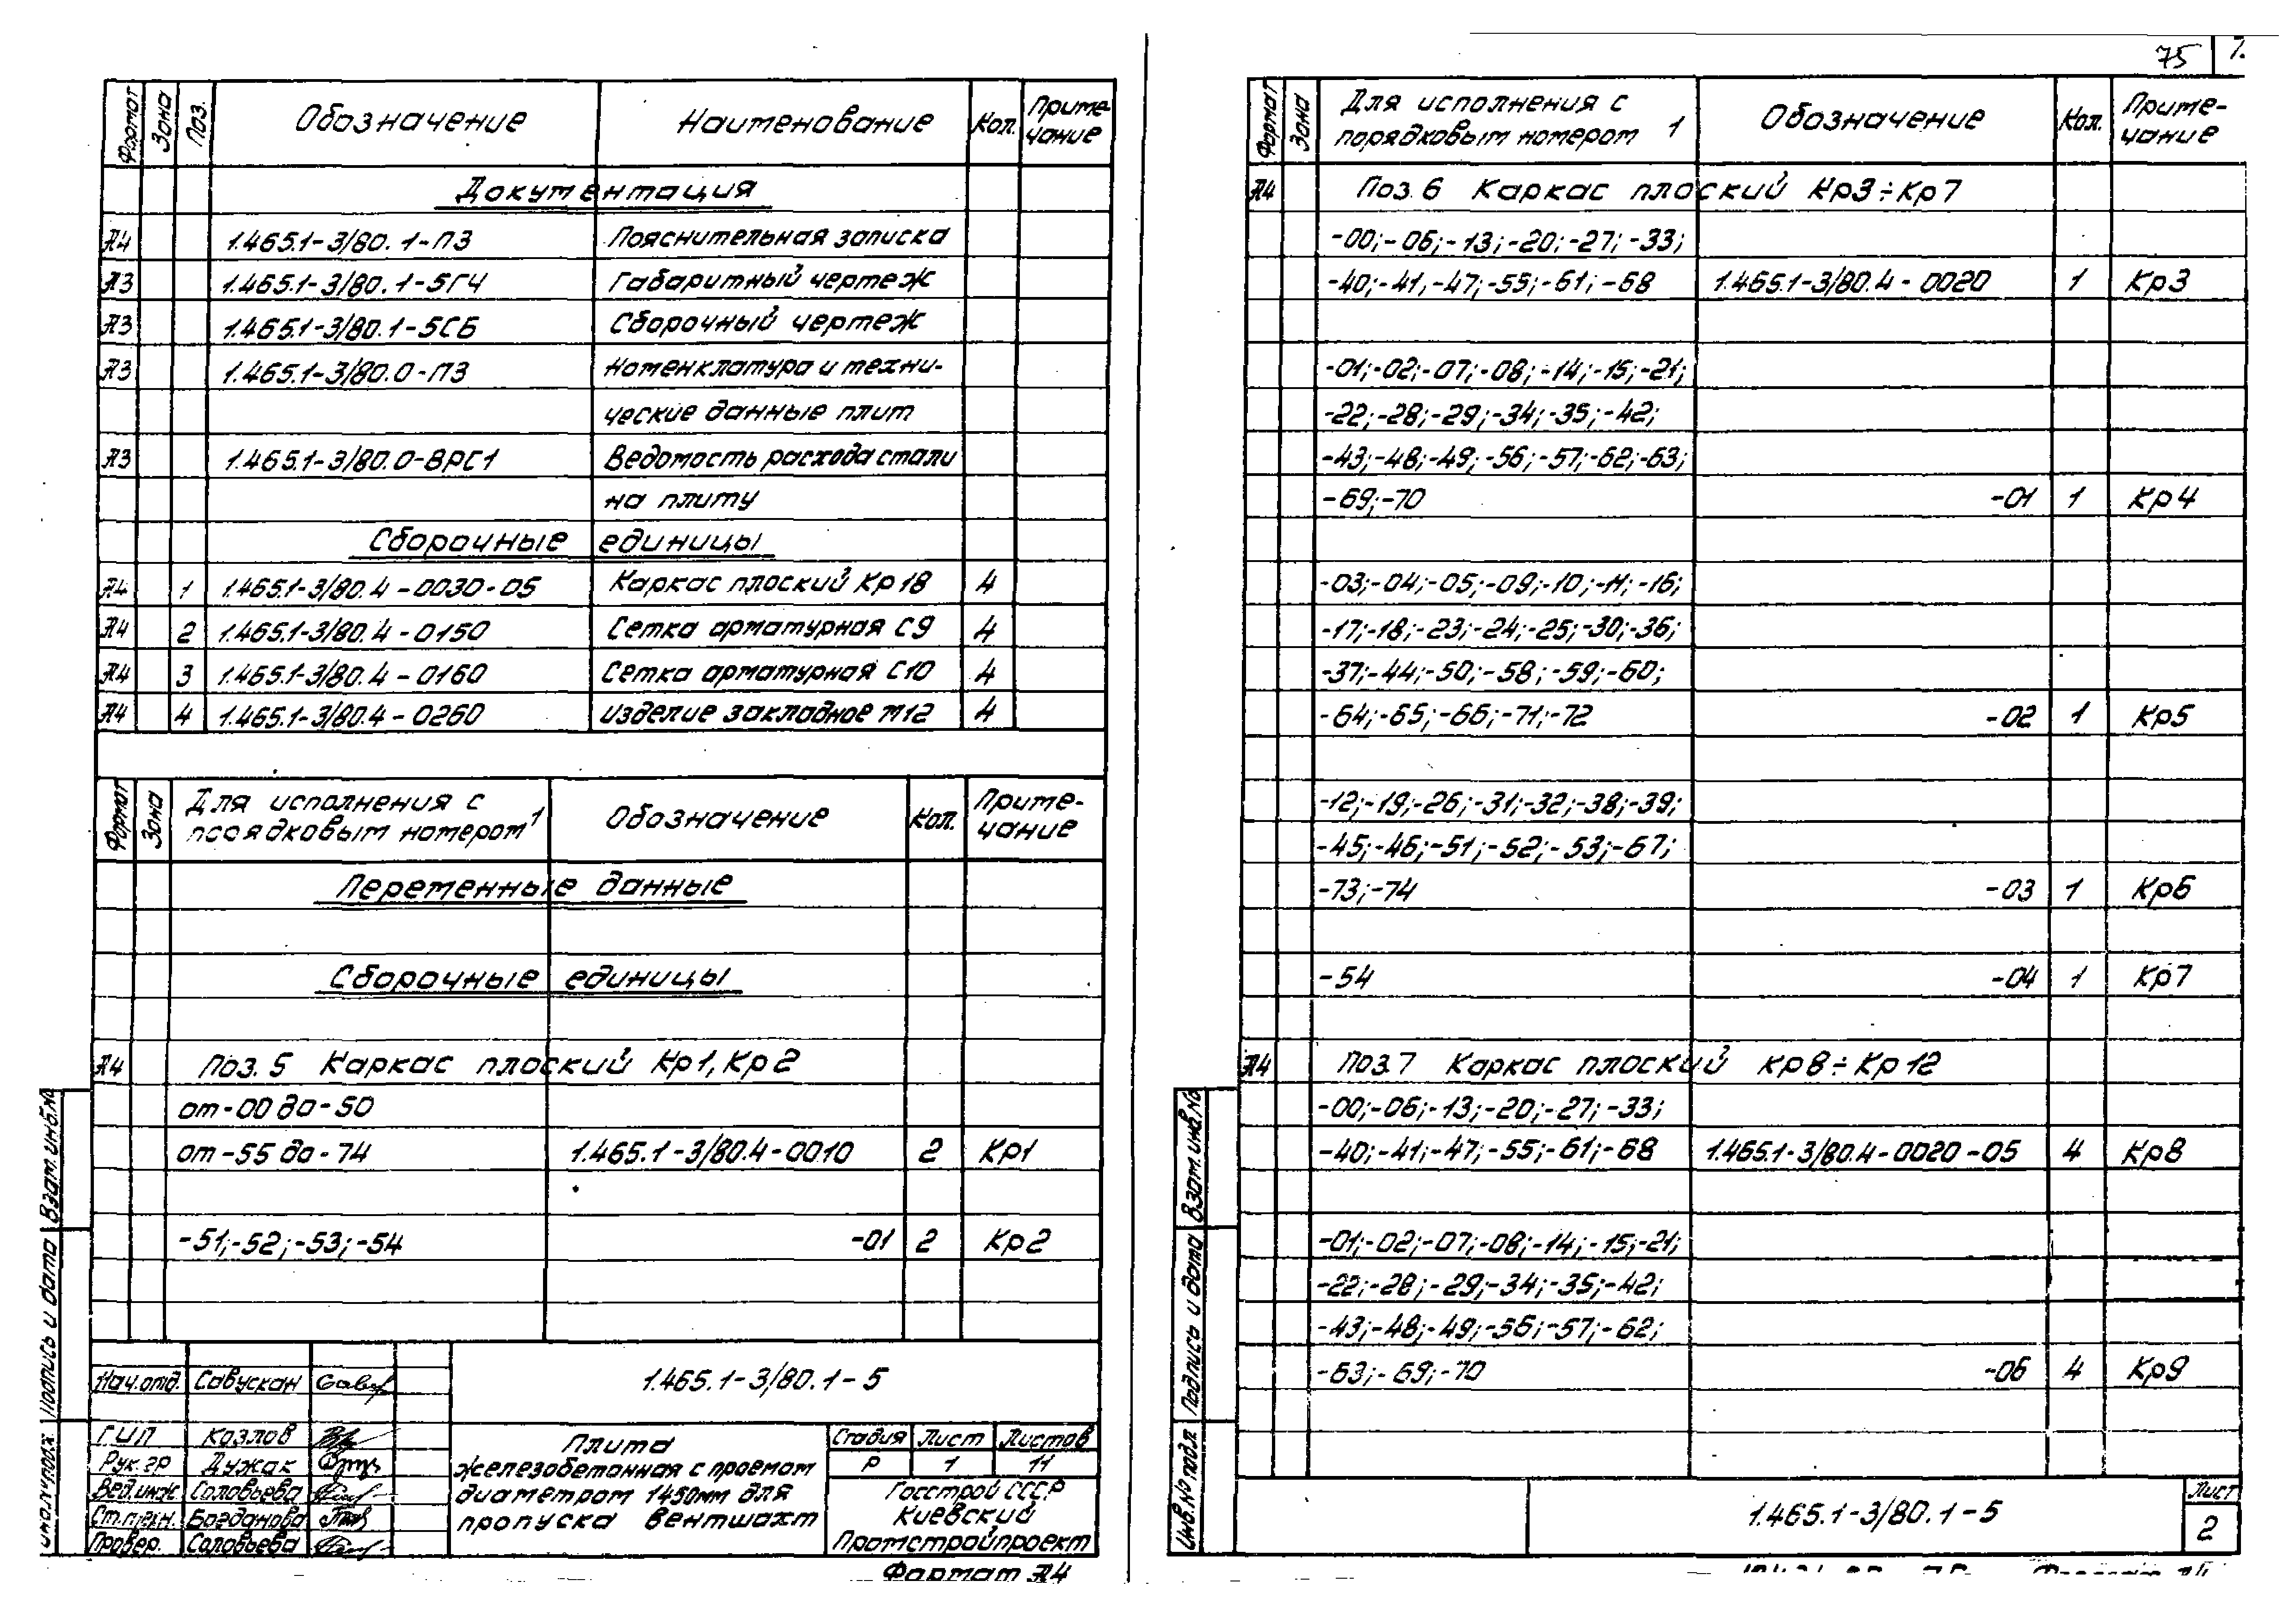 Формат Зона Поз. Обозначение Наименование Кол. Приме-
чание
Документация
А4 1.465.1-3/80.1-ПЗ Пояснительная записка
А3 1.465.1-3/80.1-5ГЧ Габаритный чертеж
А3 1.465.1-3/80.1-5СБ Сборочный чертеж
А3 1.465.1-3/80.0-ПЗ Номенклатура и техни-
ческие данные плит
А3 1.465.1-3/80.0-ВРС1 Ведомость расхода стали
на плиту
Сборочные единицы
А4 1 1.465.1-3/80.4-0030-05 Каркас плоский Кр18 4
А4 2 1.465.1-3/80.4-0150 Сетка арматурная С9 4
А4 3 1.465.1-3/80.4-0160 Сетка арматурная С10 4
А4 4 1.465.1-3/80.4-0260 Изделие закладное М12 4
Формат Зона Для исполнения с
порядковым номером 1 Обозначение Кол. Приме-
чание
Переменные данные
Сборочные единицы
А4 Поз. 5 Каркас плоский Кр1, Кр2
от-00 до-50
от-55 до-74 1.465.1-3/80.4-0010 2 Кр1
-51;-52;-53;-54 -01 2 Кр2
Взам.инв.№
Подпись и дата
Инв.№ подл.
1.465.1-3/80.1-5
Нач.отд. Савускан
ГИП Козлов
Рук.гр Дужак
Вед.инж. Соловьева
Ст.техн. Богданова
Провер. Соловьева
Плита
железобетонная с проемом
диаметром 1450мм для
пропуска вентшахт
Стадия Лист Листов
Р 1 11
Госстрой СССР
Киевский
Промстройпроект
Формат А4
75
Формат Зона Для исполнения с
порядковым номером 1 Обозначение Кол. Приме-
чание
А4 Поз. 6 Каркас плоский Кр3÷Кр7
-00;-06;-13;-20;-27;-33;
-40;-41,-47;-55;-61;-68 1.465.1-3/80.4-0020 1 Кр3
-01;-02;-07;-08;-14;-15;-21;
-22;-28;-29;-34;-35;-42;
-43;-48;-49;-56;-57;-62;-63;
-69;-70 -01 1 Кр4
-03;-04;-05;-09;-10;-11;-16;
-17;-18;-23;-24;-25;-30;-36;
-37;-44;-50;-58;-59;-60;
-64;-65;-66;-71;-72 -02 1 Кр5
-12;-19;-26;-31;-32;-38;-39;
-45;-46;-51;-52;-53;-67;
-73;-74 -03 1 Кр6
-54 -04 1 Кр7
А4 Поз.7 Каркас плоский Кр8÷Кр12
-00;-06;-13;-20;-27;-33;
-40;-41;-47;-55;-61;-68 1.465.1-3/80.4-0020-05 4 Кр8
-01;-02;-07;-08;-14;-15;-21;
-22;-28;-29;-34;-35;-42;
-43;-48;-49;-56;-57;-62;
-63;-69;-70 -06 4 Кр9
Взам.инв.№
Подпись и дата
Инв.№ подл
1.465.1-3/80.1-5
Лист
2